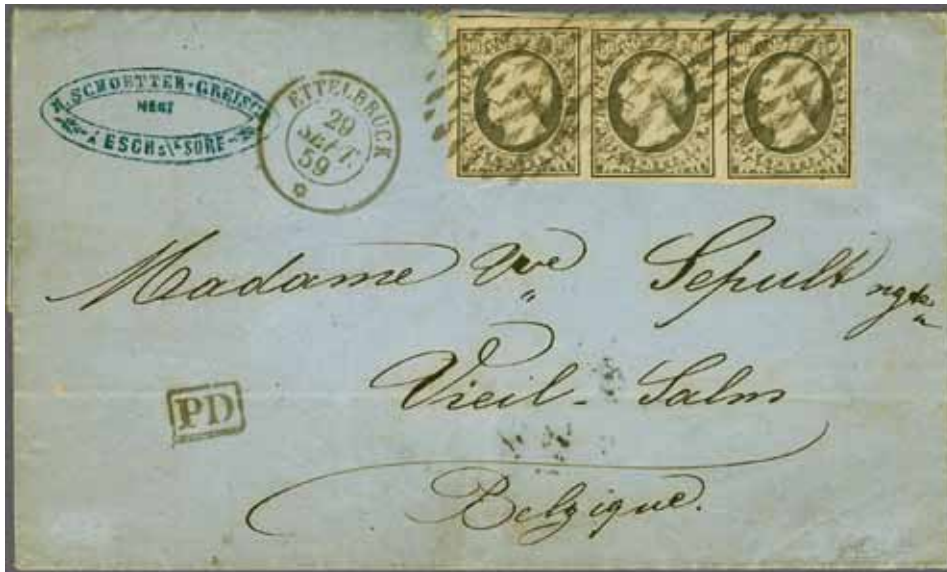 SCHOETTER-GREISCH
NEGT
À ESCH s/ SÛRE
ETTELBRUCK
29
SEPT.
59
Madame Vve Sepult ngte
Vieil-Salm
PD
Belgique.